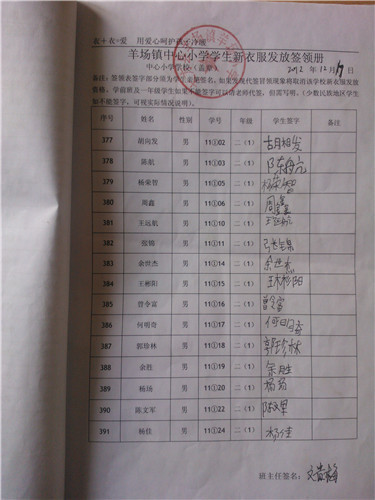 衣+衣=爱 用爱心呵护
羊场镇中心小学学生新衣服发放签领册
中心小学学校:(盖章) 2012年12月17日
备注:签领表签字部分须为学生亲笔签名,如果发现代签冒领现象将取消该学校新衣服发放
资格。学前班及一年级学生如果不能签字可以请老师代签,但需写明。(少数民族地区学生
如不能签字,可视实际情况说明)。
序号 姓名 性别 学号 年级 学生签字 备注
377 胡向发 男 11①02 二(1) 胡相发
378 陈航 男 11①03 二(1) 陈航
379 杨荣智 男 11①05 二(1) 杨荣智
380 周鑫 男 11①06 二(1) 周鑫
381 王远航 男 11①10 二(1) 王远航
382 张锦 男 11①11 二(1) 张锦
383 余世杰 男 11①14 二(1) 余世杰
384 王彬阳 男 11①15 二(1) 王彬阳
385 曾令富 男 11①16 二(1) 曾令富
386 何明奇 男 11①17 二(1) 何明奇
387 郭珍林 男 11①18 二(1) 郭珍林
388 余胜 男 11①19 二(1) 余胜
389 杨场 男 11①20 二(1) 杨场
390 陈文军 男 11①22 二(1) 陈文军
391 杨佳 男 11①24 二(1) 杨佳
班主任签名: